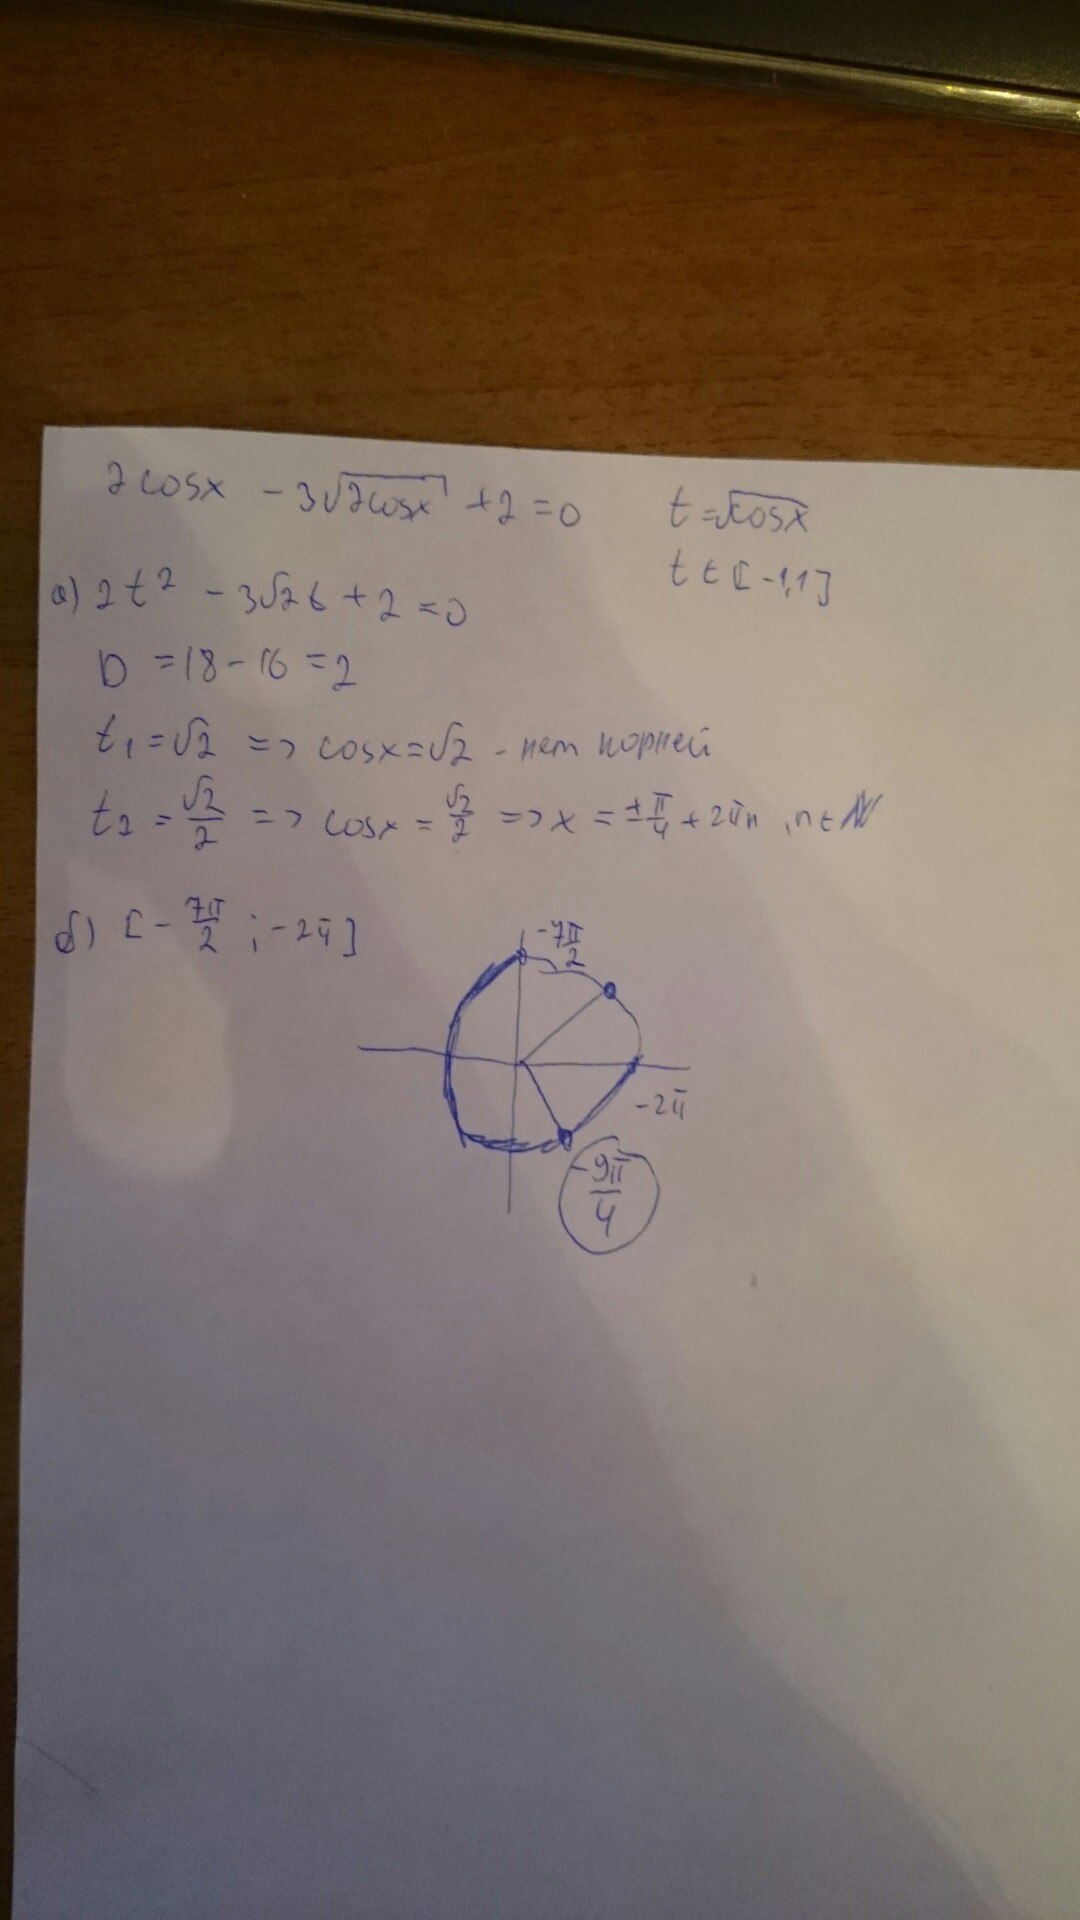 2cosx - 3√(2cosx) + 2 = 0
t = √cosx
t ∈ [-1,1]
а) 2t² - 3√2t + 2 = 0
D = 18 - 16 = 2
t₁ = √2 => cosx = √2 - нет корней
t₂ = √2/2 => cosx = √2/2 => x = ±π/4 + 2πn, n ∈ N
б) [-7π/2 ; -2π]
-7π/2
-2π
-9π/4